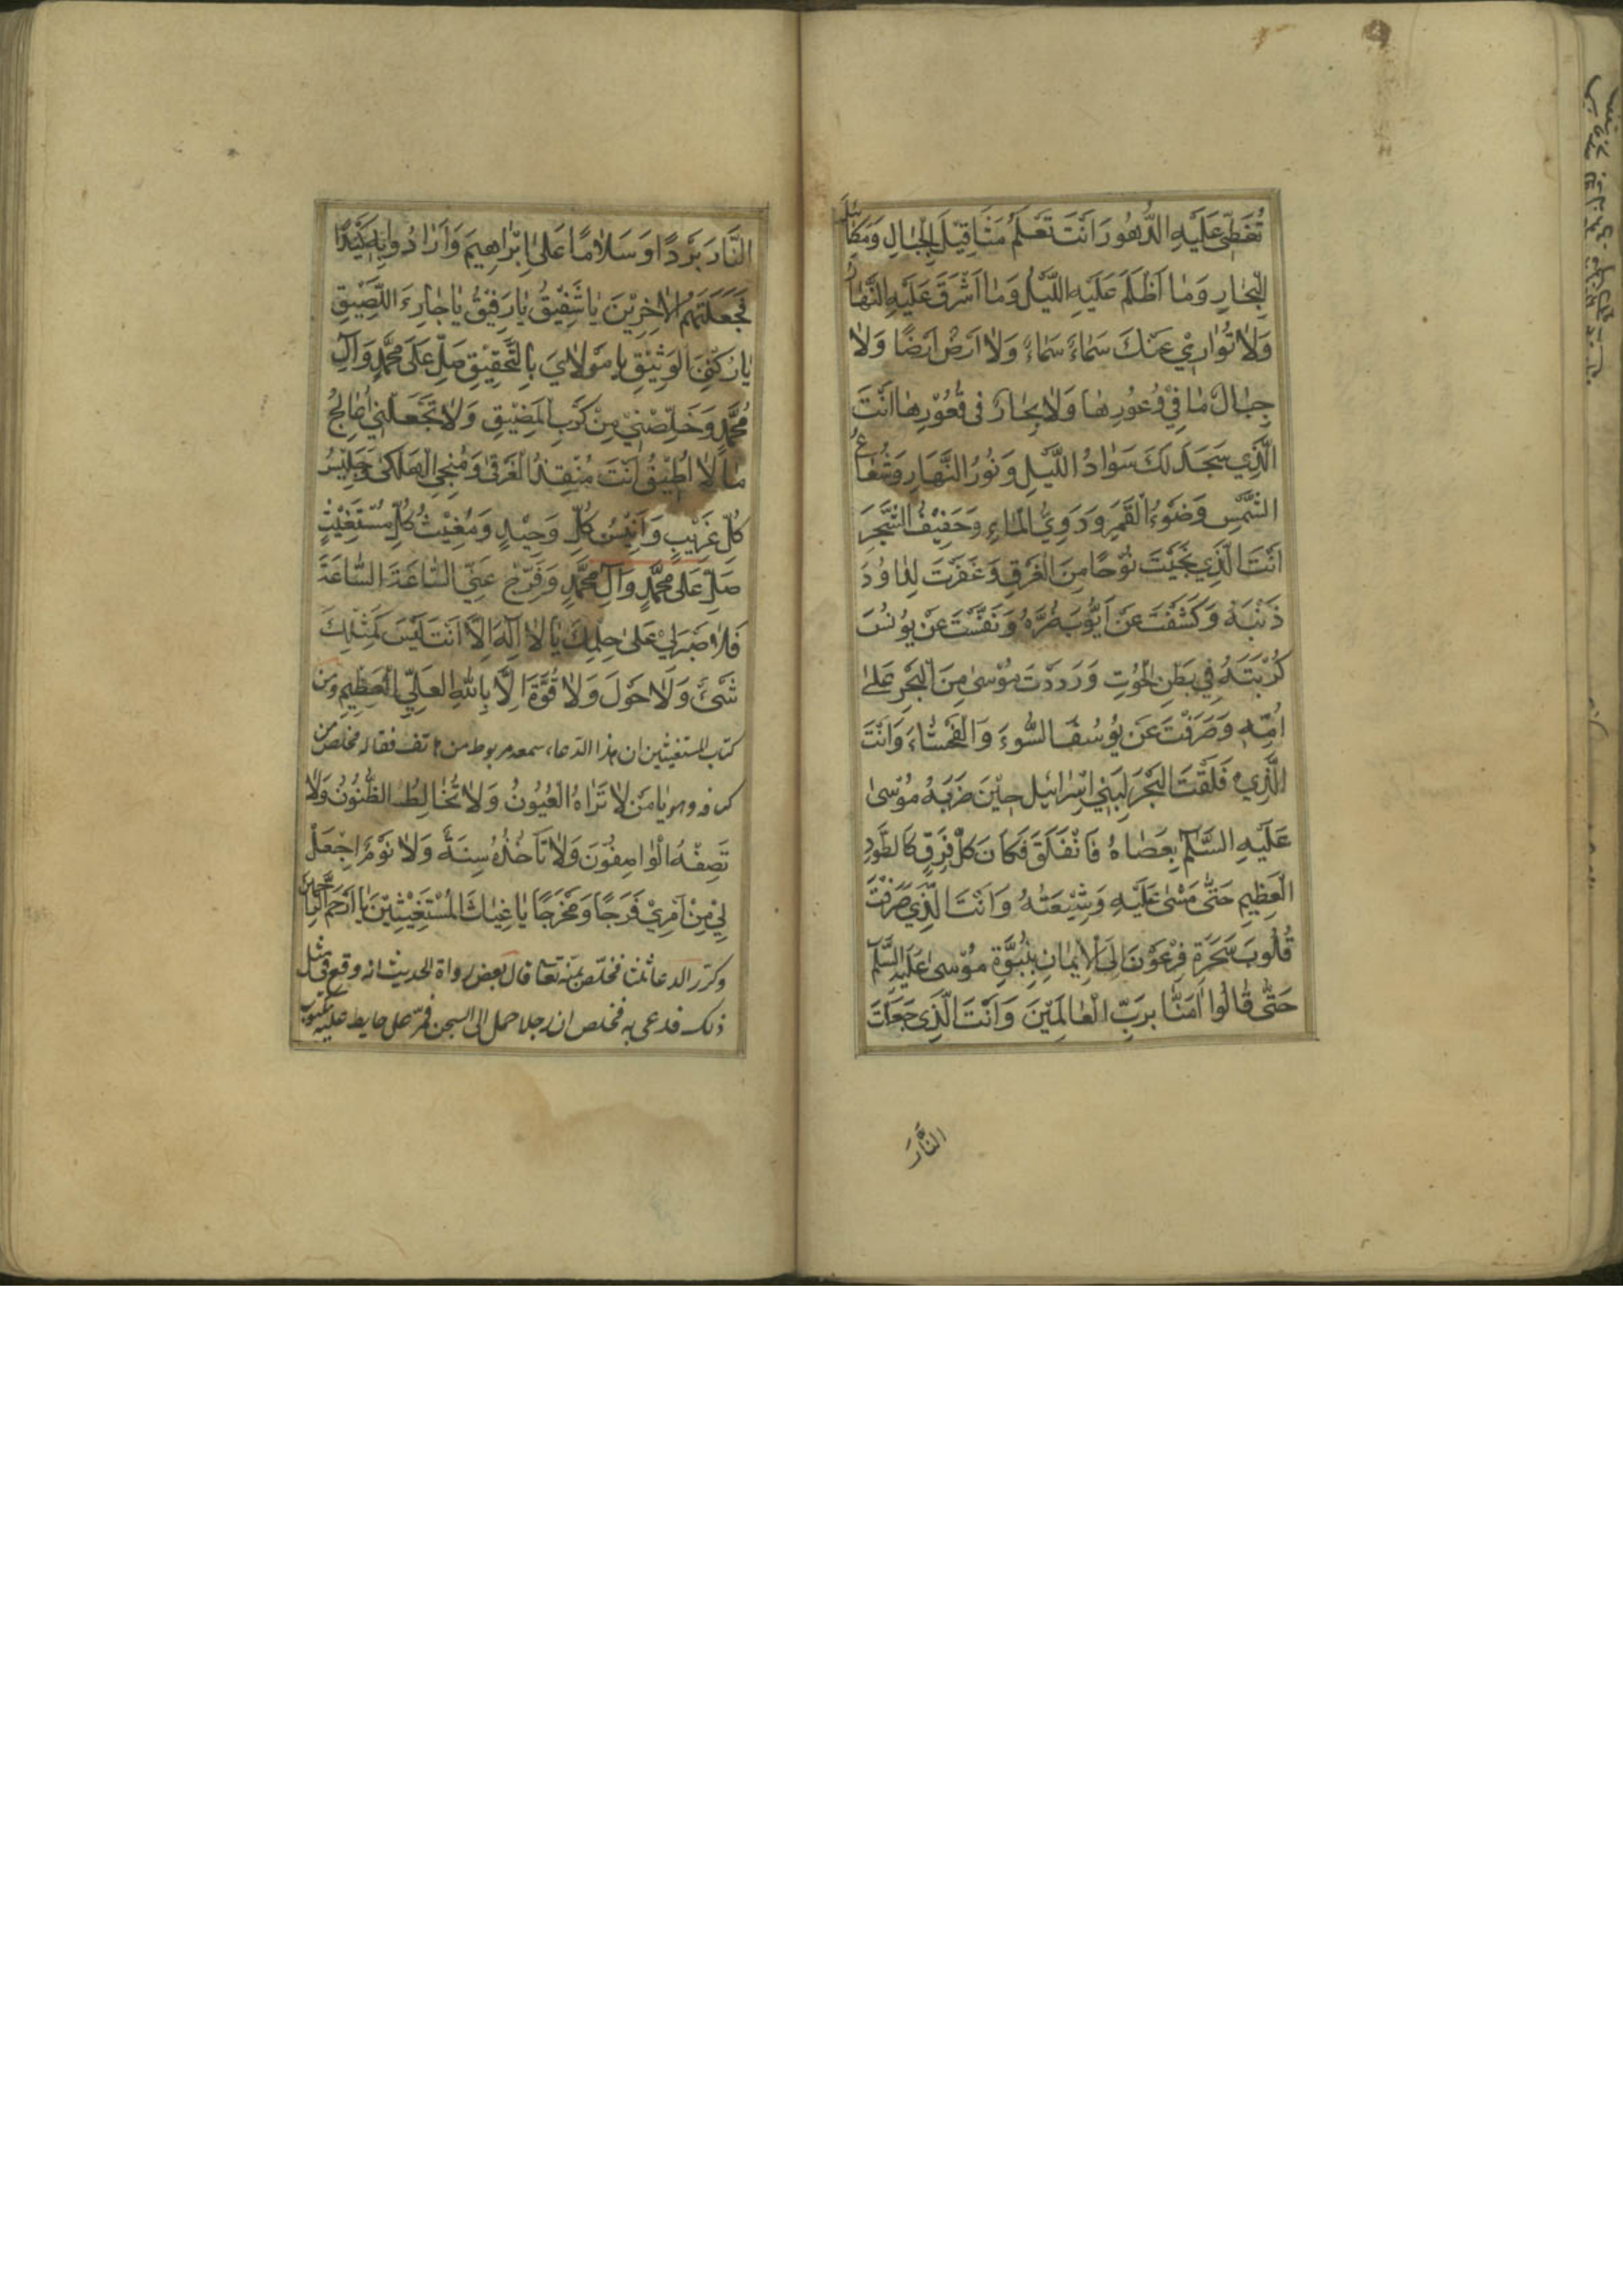 تُغَطِّي عَلَيْهِ الدُّهُورَ اَنْتَ تَعْلَمُ مَثَاقِيْلَ الْجِبَالِ وَمَكَائِيلَ
الْبِحَارِ وَمَا اَظْلَمَ عَلَيْهِ اللَّيْلُ وَمَا اَشْرَقَ عَلَيْهِ النَّهَارُ
وَلَا تُوَارِيْ عَنْكَ سَمَاءٌ سَمَاءً وَلَا اَرْضٌ اَرْضًا وَلَا
جِبَالٌ مَا فِيْ وُعُورِهَا وَلَا بِحَارٌ فى قُعُوْرِهَا اَنْتَ
الَّذِي سَجَدَ لَكَ سَوَادُ اللَّيْلِ وَنُورُ النَّهَارِ وَشُعَاعُ
الشَّمْسِ وَضَوْءُ الْقَمَرِ وَدَوِيُّ الْمَاءِ وَحَفِيْفُ الشَّجَرِ
اَنْتَ الَّذِي نَجَّيْتَ نُوْحًا مِنَ الْغَرَقِ وَغَفَرْتَ لِدَاوُدَ
ذَنْبَهُ وَكَشَفْتَ عَنْ اَيُّوبَ ضُرَّهُ وَنَفَّسْتَ عَنْ يُونُسَ
كُرْبَتَهُ فِي بَطْنِ الْحُوتِ وَرَدَدْتَ مُوْسٰى مِنَ الْبَحْرِ عَلٰى
اُمِّهِ وَصَرَفْتَ عَنْ يُوسُفَ السُّوءَ وَالْفَحْشَاءَ وَاَنْتَ
الَّذِيْ فَلَقْتَ الْبَحْرَ لِبَنِي اِسْرَائيل حِيْنَ ضَرَبَهُ مُوْسٰى
عَلَيْهِ السَّلَمُ بِعَصَاهُ فَانْفَلَقَ فَكَانَ كُلُّ فِرْقٍ كَالطَّوْدِ
الْعَظِيمِ حَتَّى مَشٰى عَلَيْهِ وَشِيْعَتُهُ وَاَنْتَ الَّذِي صَرَفْتَ
قُلُوبَ سَحَرَةِ فِرْعَوْنَ اِلَى الْاِيمَانِ بِنُبُوَّةِ مُوْسٰى عَلَيْهِ السَّلَم
حَتّٰى قَالُوا اٰمَنَّا بِرَبِّ الْعَالَمِيْنَ وَاَنْتَ الَّذِي جَعَلْتَ
النَّارَ
النَّارَ بَرْدًا وَسَلَامًا عَلٰى اِبْرَاهِيمَ وَاَرَادُوا بِهِ كَيْدًا
فَجَعَلْتَهُمُ الْاَخِرِيْنَ يَا شَفِيْقُ يَا رَفِيْقُ يَا جَارِيَ اللَّصِيْقِ
يَا رُكْنِيَ الْوَثِيْقِ يَا مَوْلَايَ بِالتَّحْقِيْقِ صَلِّ عَلٰى مُحَمَّدٍ وَآلِ
مُحَمَّدٍ وَخَلِّصْنِيْ مِنْ كَرْبِ الْمَضِيْقِ وَلَا تَجْعَلْنِيْ اُعَالِجُ
مَا لَا اُطِيْقُ اَنْتَ مُنْقِذُ الْغَرْقٰى وَمُنْجِي الْهَلْكٰى وَجَلِيْسُ
كُلِّ غَرِيْبٍ وَاَنِيْسُ كُلِّ وَحِيْدٍ وَمُغِيْثُ كُلِّ مُسْتَغِيْثٍ
صَلِّ عَلٰى مُحَمَّدٍ وَآلِ مُحَمَّدٍ وَفَرِّجْ عَنِّي السَّاعَةَ السَّاعَةَ
فَلَا صَبْرَ لِيْ عَلٰى حِلْمِكَ يَا لَا اِلٰهَ اِلَّا اَنْتَ لَيْسَ كَمِثْلِكَ
شَىْءٌ وَلَا حَوْلَ وَلَا قُوَّةَ اِلَّا بِاللّٰهِ الْعَلِيِّ الْعَظِيْمِ وَمن
كتاب المستغيثين ان هذا الدعاء سمعه مربوط من هاتف فقاله فخلص من
كربه وهو يَا مَنْ لَا تَرَاهُ الْعُيُونُ وَلَا تُخَالِطُهُ الظُّنُونُ وَلَا
تَصِفُهُ الْوَاصِفُوْنَ وَلَا تَأخُذُهُ سِنَةٌ وَلَا نَوْمٌ اِجْعَلْ
لِيْ مِنْ اَمْرِيْ فَرَجًا وَمَخْرَجًا يَا غِيَاثَ الْمُسْتَغِيْثِيْنَ يَا اَرْحَمَ الرَّاحِمِيْنَ
وكرر الدعا ثلثا فخلص بمنه تعا قال بعض رواة الحديث انه وقع في مثل
ذلك فدعى به فخلص ان رجلا حمل الى السجن فمر على حايط عليه مكتوب